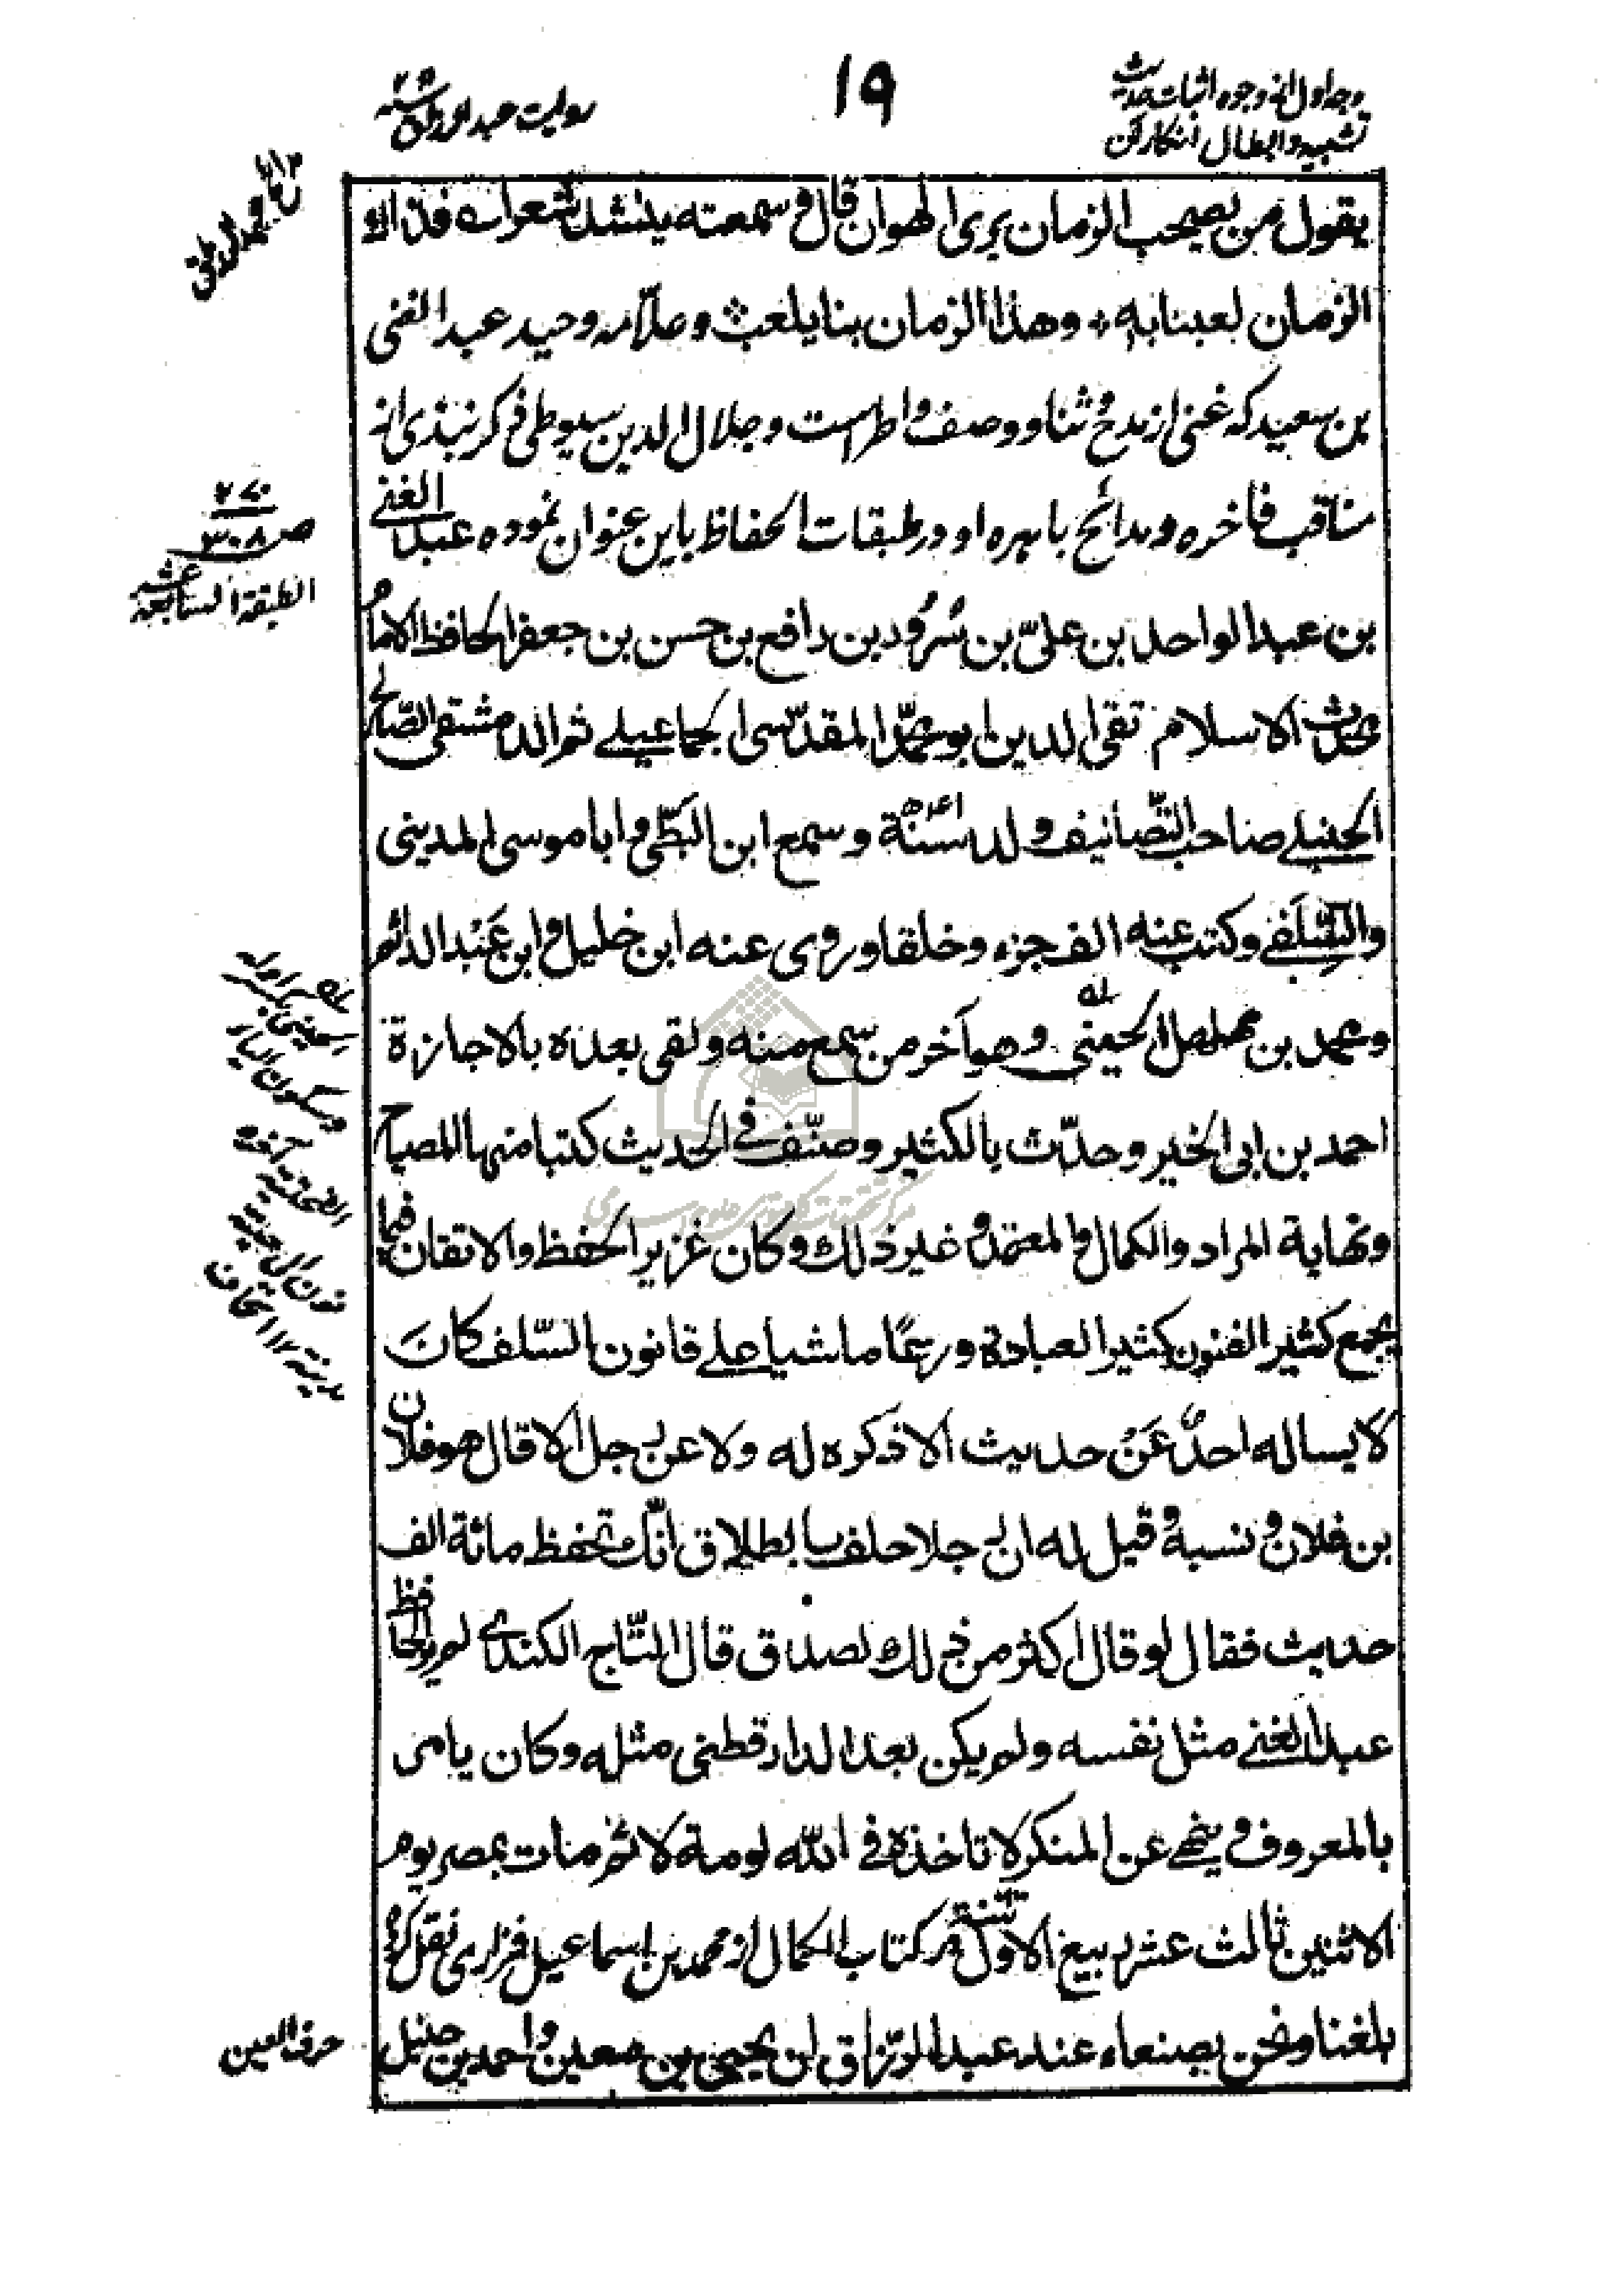 وجه اول از وجوه اثبات حدیث
تشبیه و ابطال انکار آن
۱۹
روایت عبد الرزاق
یقول من یصحب الزمان یری الهوان قال و سمعته ینشد شعرا
الزمان لعبنا به وهذا الزمان بنا یلعب و علامه وحید عبد الغنی
بن سعید که غنی از مدح و ثنا و وصف و اطراست و جلال الدین سیوطی ذکر نبذی از
مناقب فاخره و مدائح باهره او در طبقات الحفاظ باین عنوان نموده عبد الغنی
بن عبد الواحد بن علیّ بن سُرُور بن رافع بن حسن بن جعفر الحافظ الامام
محدث الاسلام تقی الدین ابو محمّد المقدّسی الجماعیلی ثم الدمشقی الصّالحی
الحنبلے صاحب التّصانیف ولد سنة ۵۴۱ وسمع ابن البَطّی و ابا موسی المدینی
والسِّلَفے وکتب عنه الف جزء وخلقا وروی عنه ابن خلیل و ابن عَبْد الدائم
ومحمد بن مهلهل الجینی وهو آخر من سمع منه و بقی بعده بالاجازة
احمد بن ابی الخیر وحدّث بالکثیر وصنّف فی الحدیث کتبا منها المصباح
ونهایة المراد والکمال والعمدة و غیر ذلک وکان غزیر الحفظ والاتقان قیما
بجمع کثیر الفنون کثیر العبادة ورعًا ماشیا علے قانون السّلف کانَ
لا یساله احدٌ عَنْ حدیث الا ذکره له ولا عن رجل الا قال هو فلان
بن فلان و نسبه و قیل له ان رجلا حلف بالطلاق انّک تحفظ مائة الف
حدیث فقال لو قال اکثر من ذلک لصدق قال التّاج الکندی لم یر الحافظ
عبد الغنے مثل نفسه ولم یکن بعد الدارقطنی مثله وکان یامر
بالمعروف و ینهی عن المنکر لا تاخذه فی الله لومة لائم مات بمصر یوم
الاثنین ثالث عشر ربیع الاول سنة در کتاب الکمال از محمد بن اسماعیل فزاری نقل کرده
بلغنا ونحن بصنعاء عند عبد الرّزاق ان یحیی بن معین و احمد بن حنبل
۲۷۰
ص ۳۰۸
الطبقة السابعة عشر
حرف العین
مرکز تحقیقات کامپیوتری علوم اسلامی